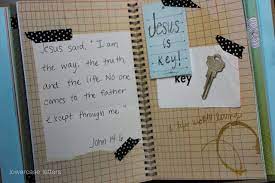 Jesus said, "I am
the way, the truth,
and the life. No one
comes to the father
except through me."
John 14:6
Jesus
is
key!
key
lowercase letters